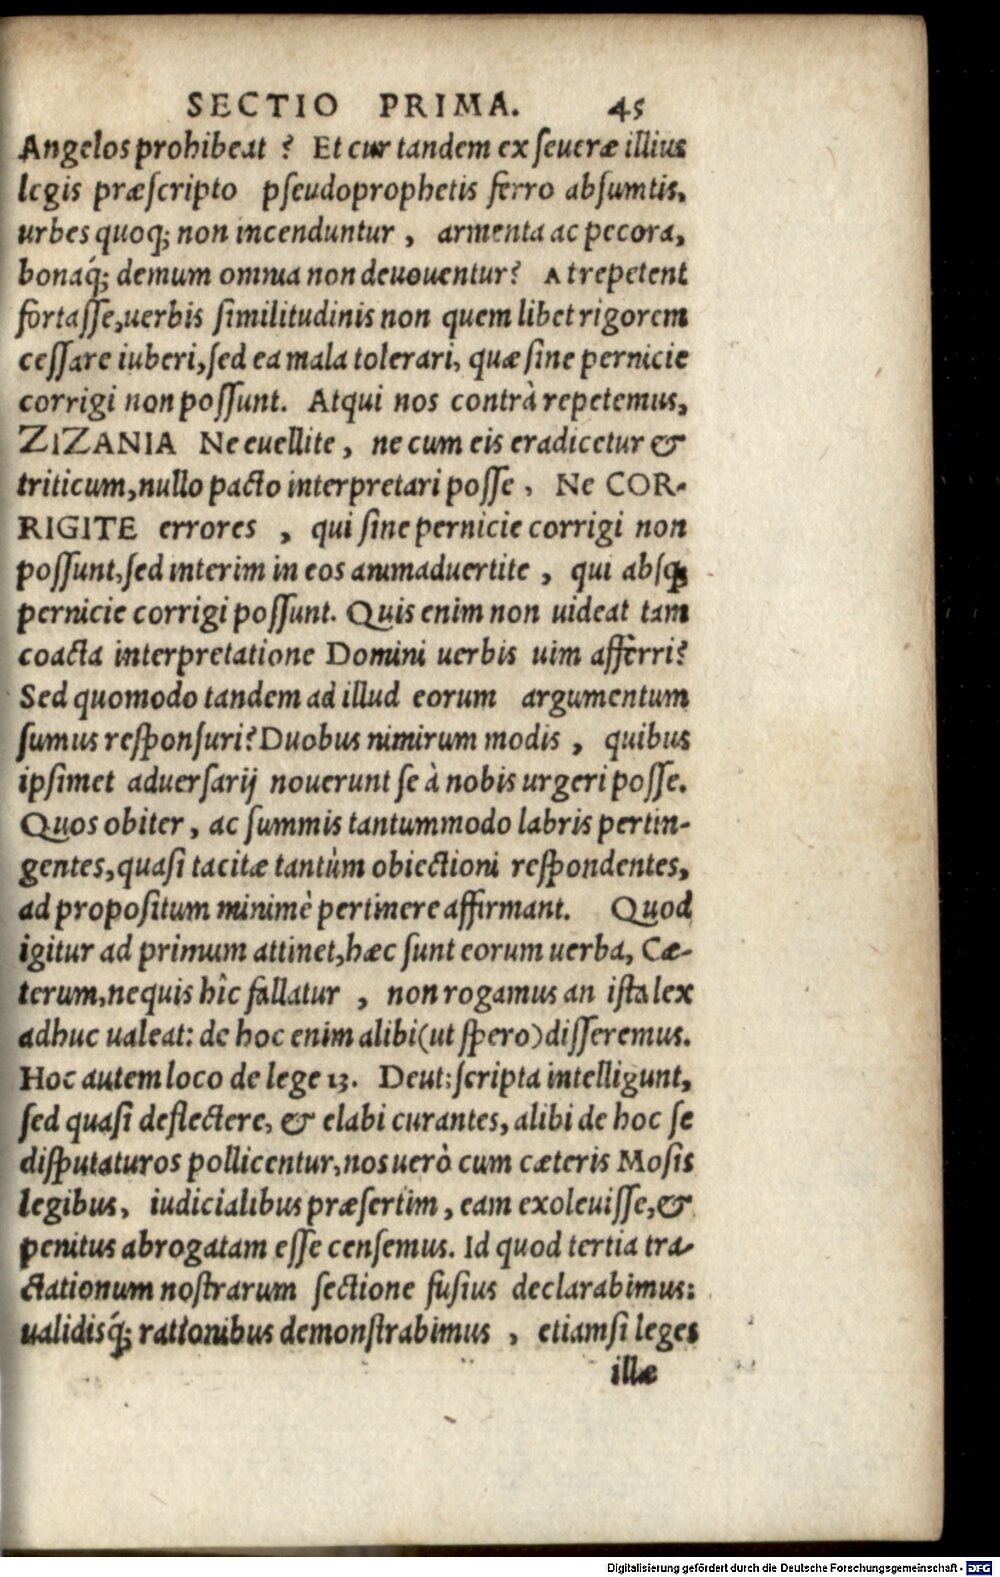 SECTIO PRIMA. 45
Angelos prohibeat ? Et cur tandem ex seueræ illius
legis præscripto pseudoprophetis ferro absumtis,
urbes quoq; non incenduntur , armenta ac pecora,
bonaq́; demum omnia non deuouentur? At repetent
fortasse, uerbis similitudinis non quem libet rigorem
cessare iuberi, sed ea mala tolerari, quæ sine pernicie
corrigi non possunt. Atqui nos contrà repetemus,
ZIZANIA Ne euellite , ne cum eis eradicetur &
triticum, nullo pacto interpretari posse , Ne COR-
RIGITE errores , qui sine pernicie corrigi non
possunt, sed interim in eos animaduertite , qui absq;
pernicie corrigi possunt. Quis enim non uideat tam
coacta interpretatione Domini uerbis uim afferri?
Sed quomodo tandem ad illud eorum argumentum
sumus responsuri? Duobus nimirum modis , quibus
ipsimet aduersarij nouerunt se à nobis urgeri posse.
Quos obiter , ac summis tantummodo labris pertin-
gentes, quasi tacitæ tantùm obiectioni respondentes,
ad propositum minimè pertinere affirmant. Quod
igitur ad primum attinet, hæc sunt eorum uerba, Cæ-
terum, nequis hîc fallatur , non rogamus an ista lex
adhuc ualeat: de hoc enim alibi (ut spero) disseremus.
Hoc autem loco de lege 13. Deut: scripta intelligunt,
sed quasi deflectere, & elabi curantes, alibi de hoc se
disputaturos pollicentur, nos uerò cum cæteris Mosis
legibus, iudicialibus præsertim, eam exoleuisse, &
penitus abrogatam esse censemus. Id quod tertia tra-
ctationum nostrarum sectione fusius declarabimus:
ualidisq́; rationibus demonstrabimus , etiamsi leges
illæ
Digitalisierung gefördert durch die Deutsche Forschungsgemeinschaft - DFG